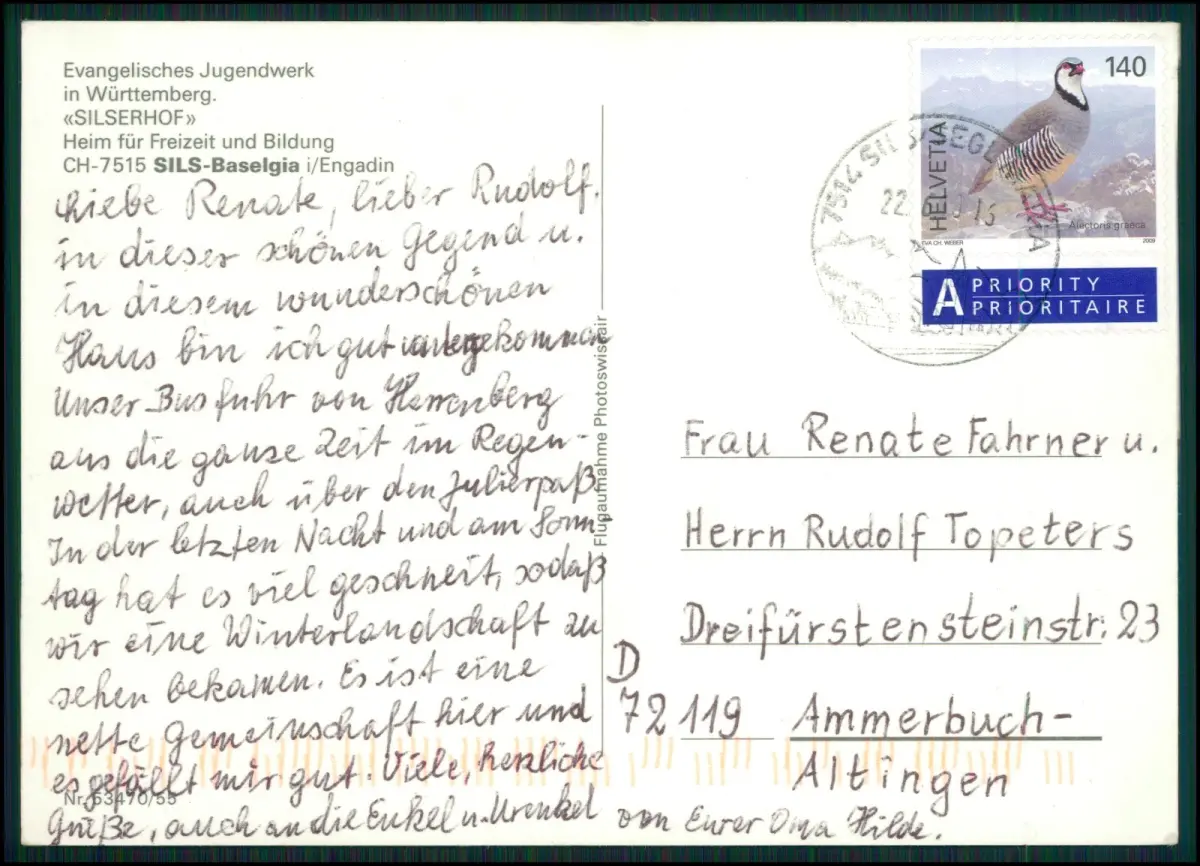 Evangelisches Jugendwerk
in Württemberg.
«SILSERHOF»
Heim für Freizeit und Bildung
CH-7515 SILS-Baselgia i/Engadin
Liebe Renate, lieber Rudolf.
in dieser schönen Gegend u.
in diesem wunderschönen
Haus bin ich gut untergekommen
Unser Bus fuhr von Herrenberg
aus die ganze Zeit im Regen-
wetter, auch über den Julierpaß.
In der letzten Nacht und am Sonn
tag hat es viel geschneit, sodaß
wir eine Winterlandschaft zu
sehen bekamen. Es ist eine
nette Gemeinschaft hier und
es gefällt mir gut. Viele, herzliche
Grüße, auch an die Enkel u. Urenkel von Eurer Oma Hilde.
Nr. 53470/55
Flugaufnahme Photoswissair
140
HELVETIA
Alectoris graeca
EVA CH. WEBER
2009
A PRIORITY
PRIORITAIRE
7514 SILS
22.
Frau Renate Fahrner u.
Herrn Rudolf Topeters
Dreifürstensteinstr. 23
D
72 119 Ammerbuch-
Altingen